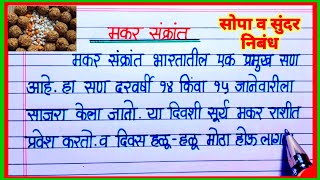 मकर संक्रांत
सोपा व सुंदर
निबंध
मकर संक्रांत भारतातील एक प्रमुख सण
आहे. हा सण दरवर्षी १४ किंवा १५ जानेवारीला
साजरा केला जातो. या दिवशी सूर्य मकर राशीत
प्रवेश करतो. व दिवस हळू-हळू मोठा होऊ लागतो